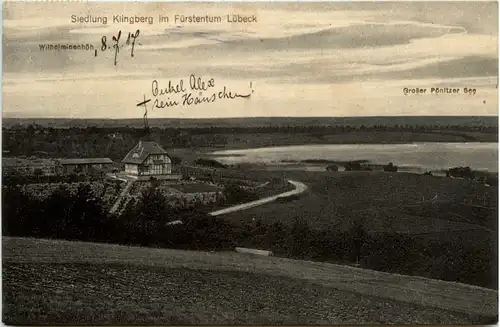 Siedlung Klingberg im Fürstentum Lübeck
Wilhelminenhöh, 8.7.17
Onkel Alex
+ sein Häuschen!
Großer Pönitzer See